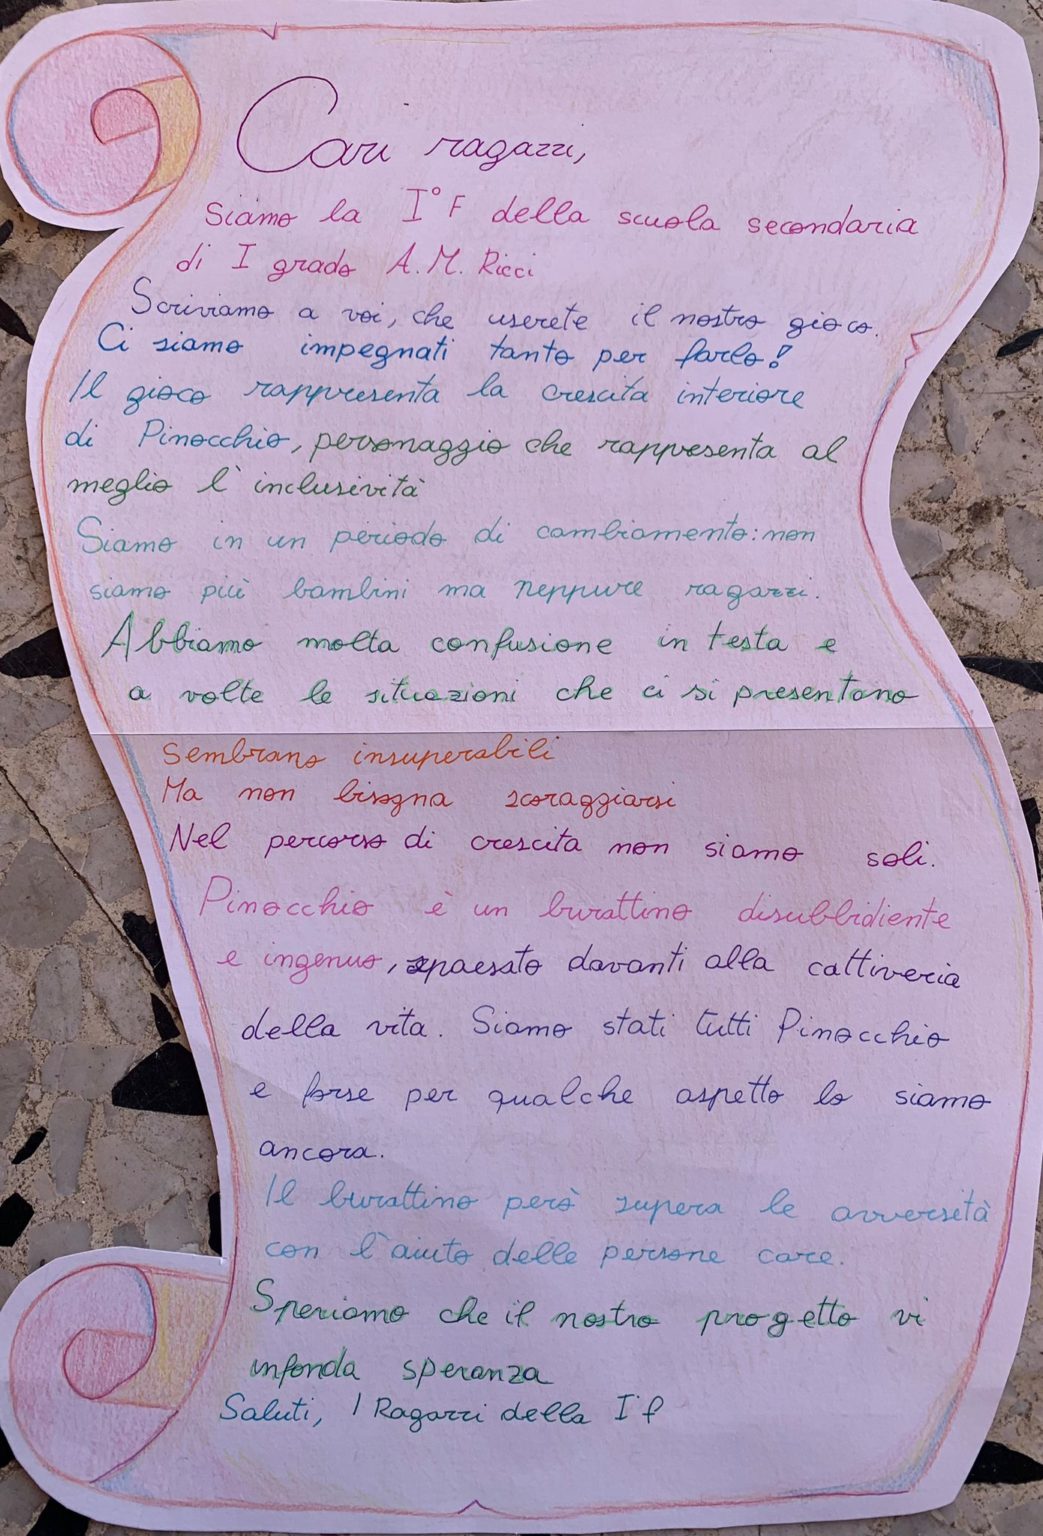 Cari ragazzi,
Siamo la I° F della scuola secondaria
di I grado A. M. Ricci
Scriviamo a voi, che userete il nostro gioco.
Ci siamo impegnati tanto per farlo!
Il gioco rappresenta la crescita interiore
di Pinocchio, personaggio che rappresenta al
meglio l'inclusività
Siamo in un periodo di cambiamento: non
siamo più bambini ma neppure ragazzi.
Abbiamo molta confusione in testa e
a volte le situazioni che ci si presentano
sembrano insuperabili
Ma non bisogna scoraggiarsi
Nel percorso di crescita non siamo soli.
Pinocchio è un burattino disubbidiente
e ingenuo, spaesato davanti alla cattiveria
della vita. Siamo stati tutti Pinocchio
e forse per qualche aspetto lo siamo
ancora.
Il burattino però supera le avversità
con l'aiuto delle persone care.
Speriamo che il nostro progetto vi
infonda speranza
Saluti, I Ragazzi della I°f